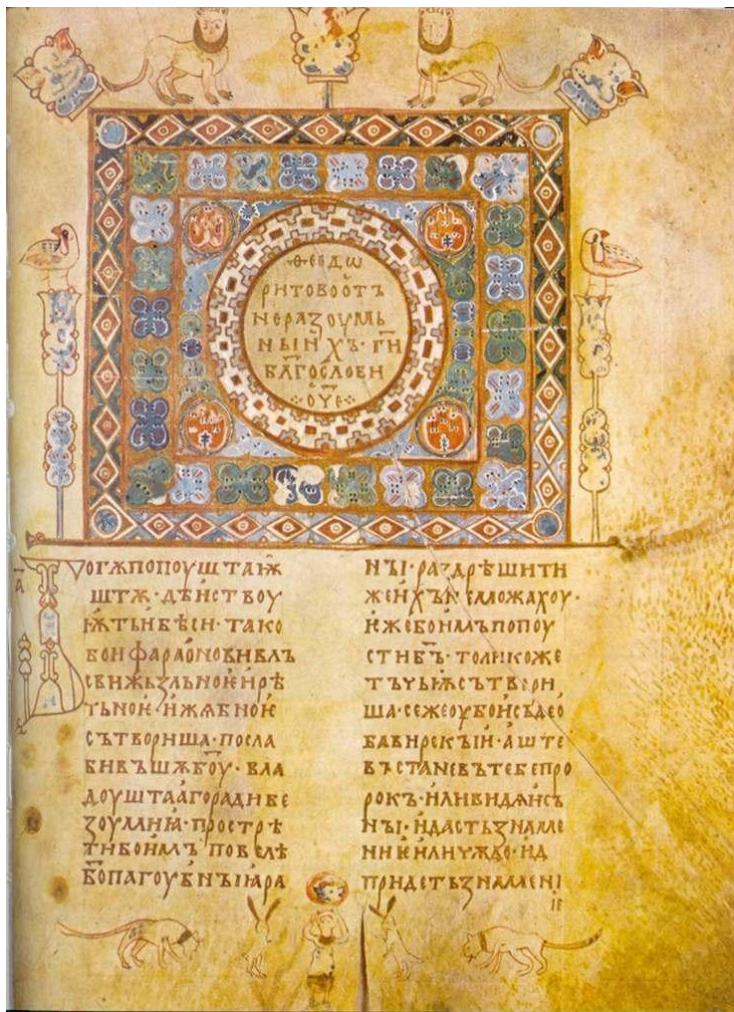 ѲЕОДѠ
РИТОВООТЪ
НЕРАЗОУМЬ
НЫИХЪ· Г҃И
БЛ҃АГОСЛОВИ
О҃ЧЕ
БОГѪПОПОУШТАѬ
ШТѪ·ДѢИСТВОУ
ѬТЬИБѢСИ·ТАКО
БОИФАРАОНОВИВЛЪ
СВИЖЬЗЛЬНОѤИРѢ
ТЬНОѤ·ИЖѦБНОѤ
СЪТВОРИША·ПОСЛА
БИВЪШѪБ҃ОУ·ВЛА
ДОУШТААГОРАДИБЕ
ЗОУМИꙖ·ПРОСТРѢ
ТИБОИМЪПОВЕЛѢ
Б҃ОПАГОУБНЪІꙖРА
НЪІ·РАЗДРѢШИТИ
ЖЕИХЪНЕМОЖАХОУ·
ѤЖЕБОИМЪПОПОУ
СТИБ҃Ъ·ТОЛИКОЖЕ
ТЪЧЬѬСЪТВОРИ
ША·СЕЖЕОУБОИСЪДЕО
БАВИРЕКЪІИ·АШТЕ
ВЪСТАНЕВЪТЕБЕПРО
РОКЪ·ИЛИВИДѦИСЪ
НЪІ·ИДАСТЬЗНАМЕ
НИѤИЛИЧЮДО·ИД
ПРИДЕТЬЗНАМЕНІ
ІЕ